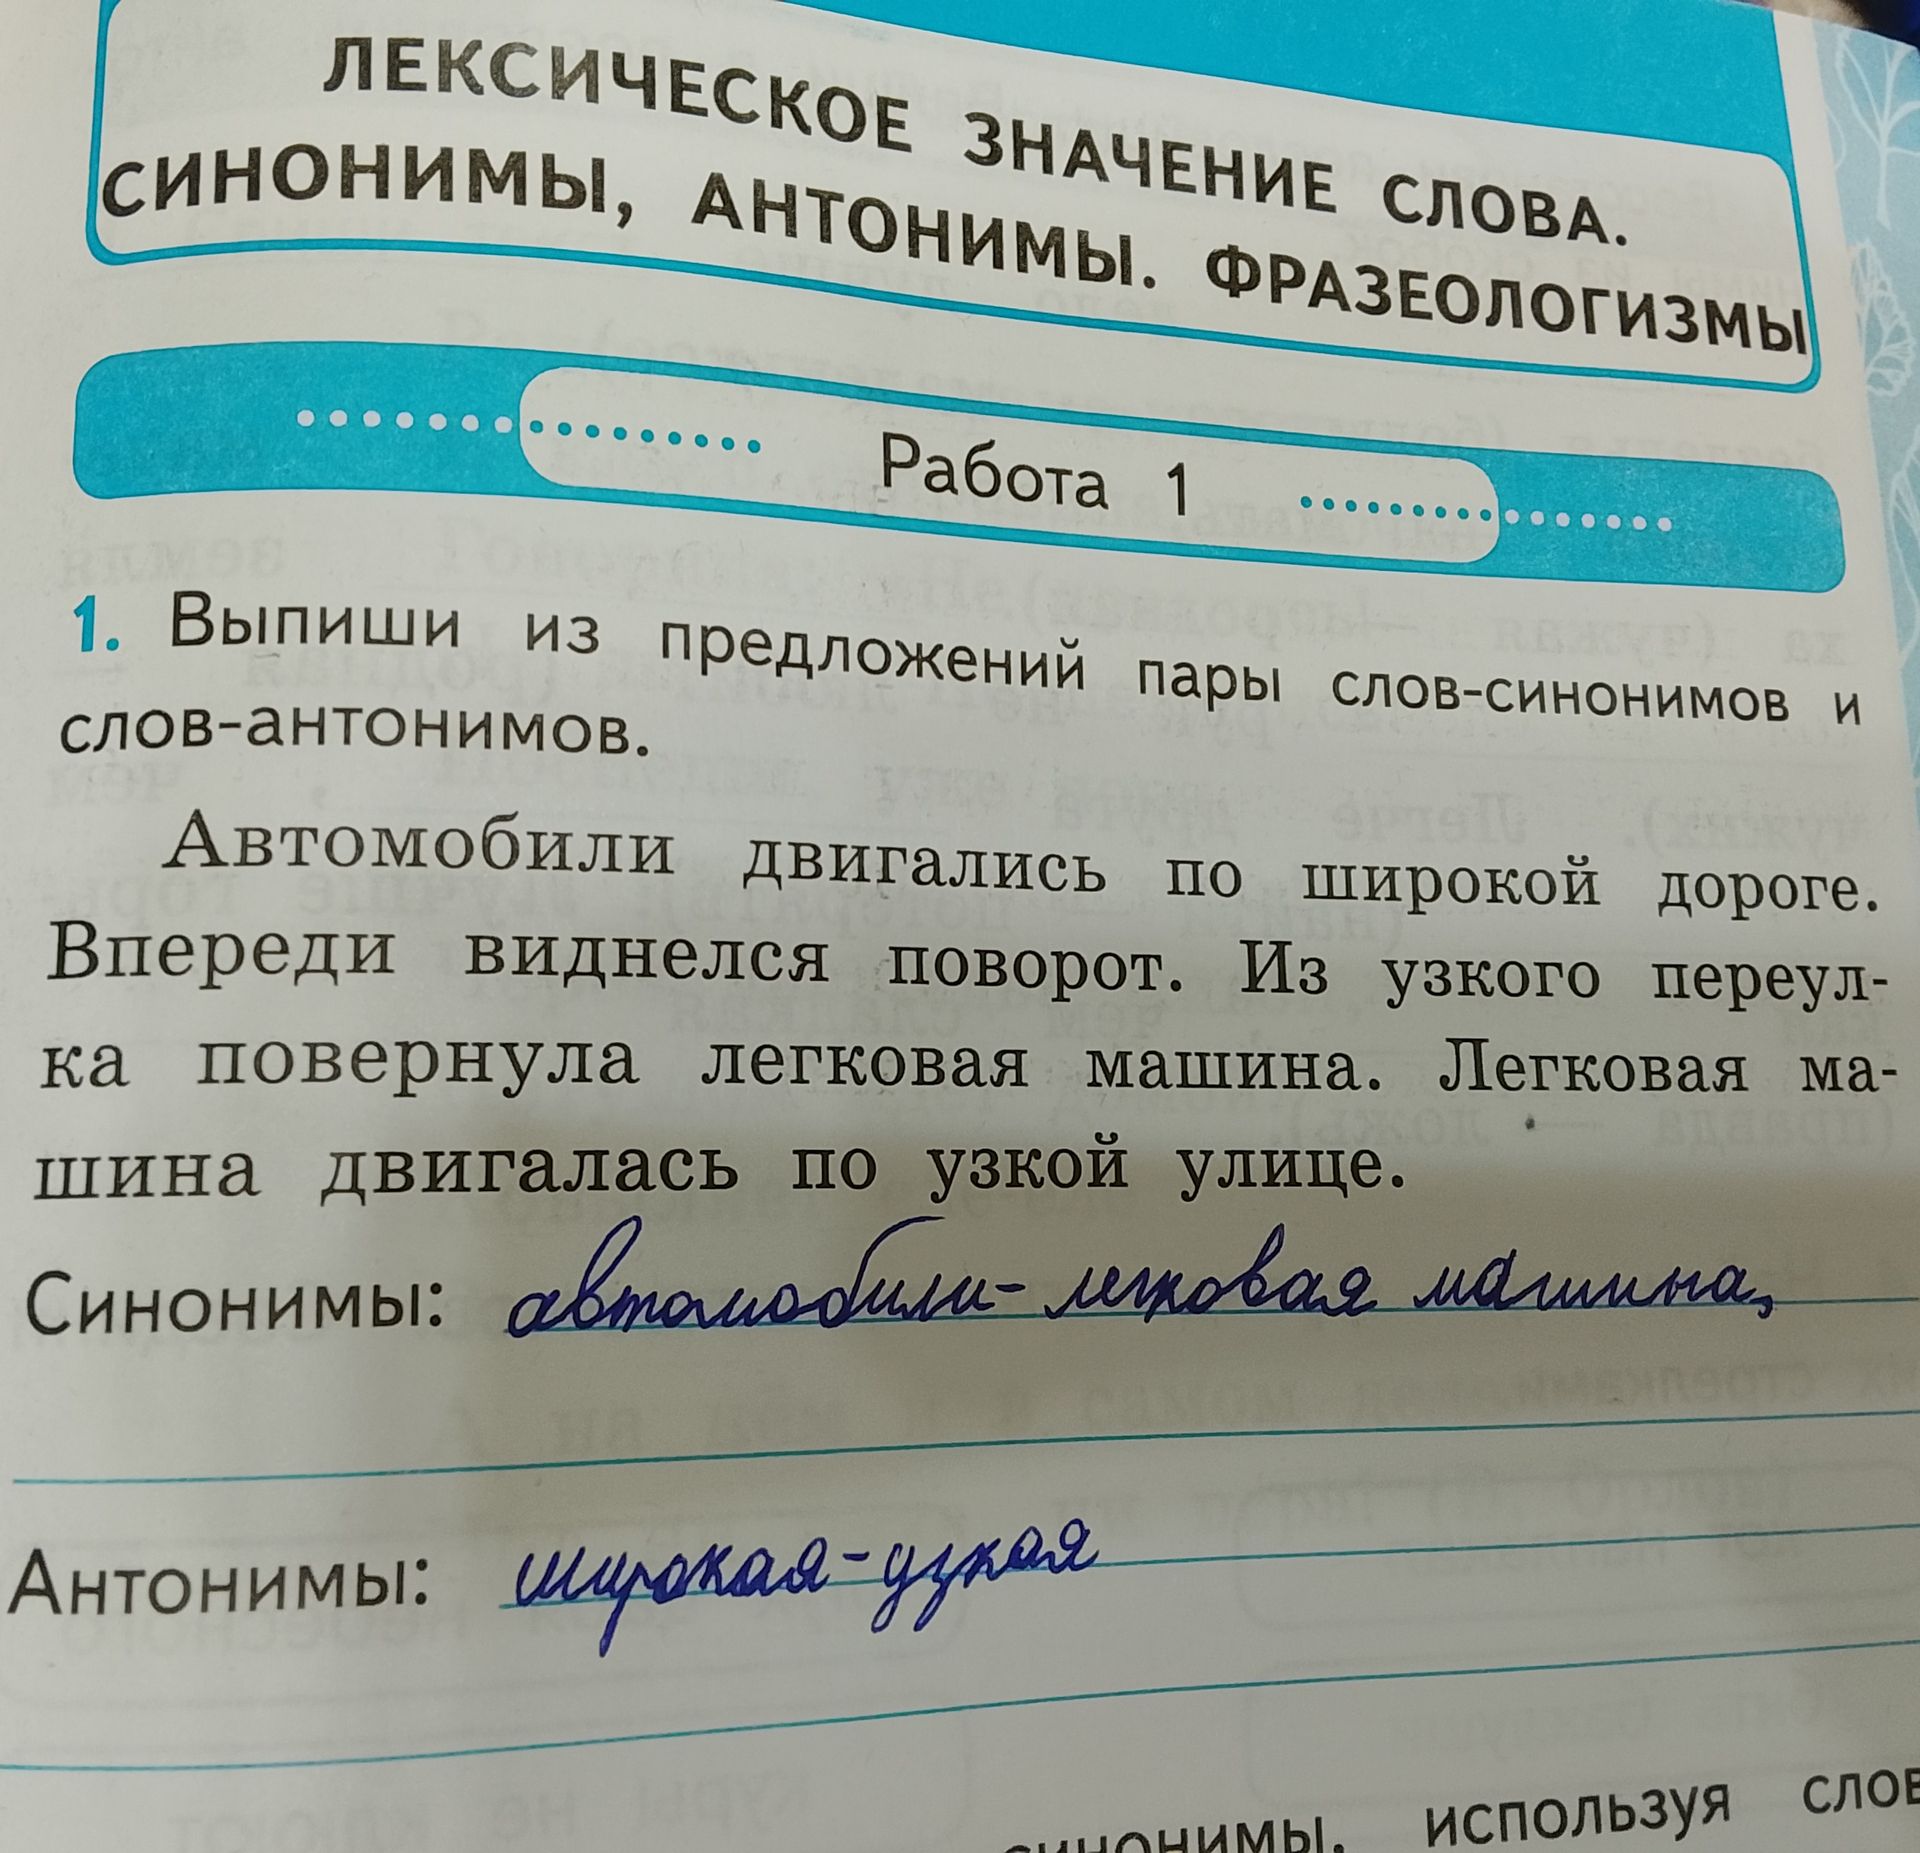 ЛЕКСИЧЕСКОЕ ЗНАЧЕНИЕ СЛОВА.
СИНОНИМЫ, АНТОНИМЫ. ФРАЗЕОЛОГИЗМЫ
Работа 1
1. Выпиши из предложений пары слов-синонимов и
слов-антонимов.
Автомобили двигались по широкой дороге.
Впереди виднелся поворот. Из узкого переул-
ка повернула легковая машина. Легковая ма-
шина двигалась по узкой улице.
Синонимы: автомобили-легковая машина,
Антонимы: широкая-узкая
синонимы, используя